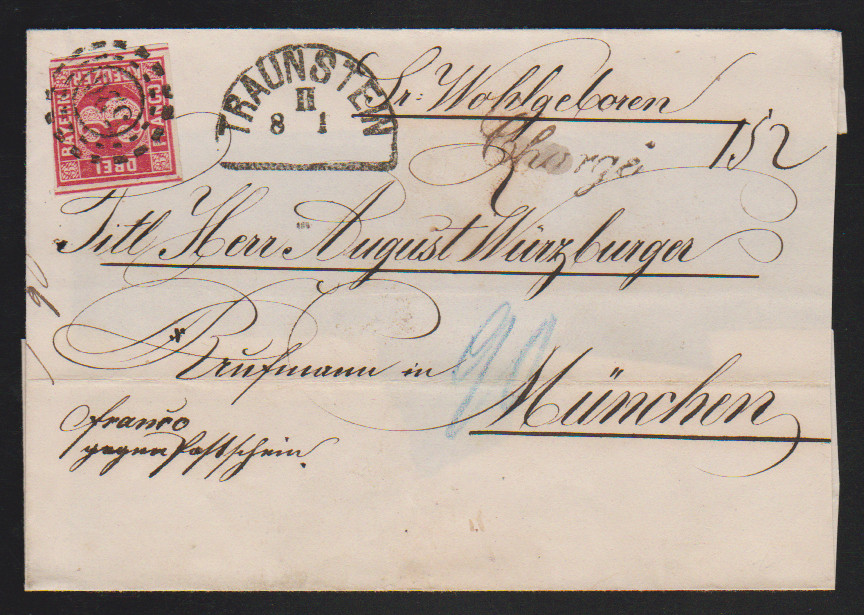 BAYERN
DREI
TRAUNSTEIN
II
8 1
Sr: Wohlgeboren
Chargé
152
Titl Herr August Würzburger
Kaufmann in
München
franco
gegen Postschein.
90